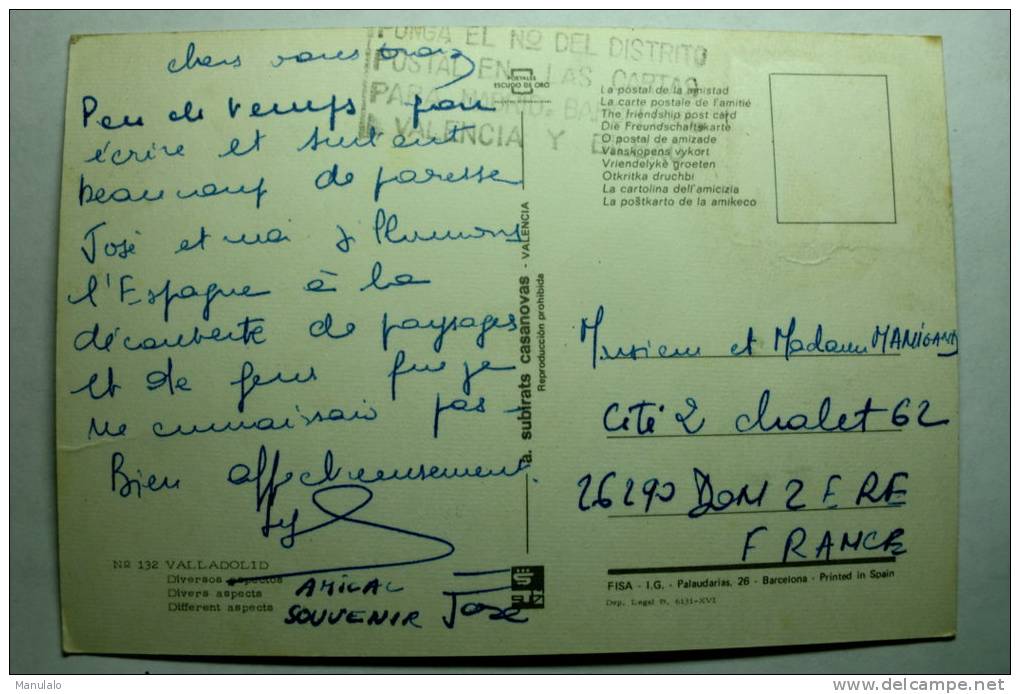 chers
Peu de temps pour
écrire et surtout
beaucoup de paresse
José et moi sillonnons
l'Espagne à la
découverte de paysages
et de gens que je
ne connaissais pas.
Bien affectueusement
AMICAL
SOUVENIR José
Nº 132 VALLADOLID
Diversos aspectos
Divers aspects
Different aspects
PONGA EL Nº DEL DISTRITO
POSTAL EN LAS CARTAS
PARA MADRID, BAR
VALENCIA Y
POSTALES
ESCUDO DE ORO
a. subirats casanovas - VALENCIA
Reproducción prohibida
La postal de la amistad
La carte postale de l'amitié
The friendship post card
Die Freundschaftskarte
O postal de amizade
Vänskapens vykort
Vriendelyke groeten
Otkritka druchbi
La cartolina dell'amicizia
La poŝtkarto de la amikeco
Monsieur et Madame MANIGAND
Cité 2 chalet 62
26290 DONZERE
FRANCE
FISA - I.G. - Palaudarias, 26 - Barcelona - Printed in Spain
Dep. Legal B. 6131-XVI
Manulalo